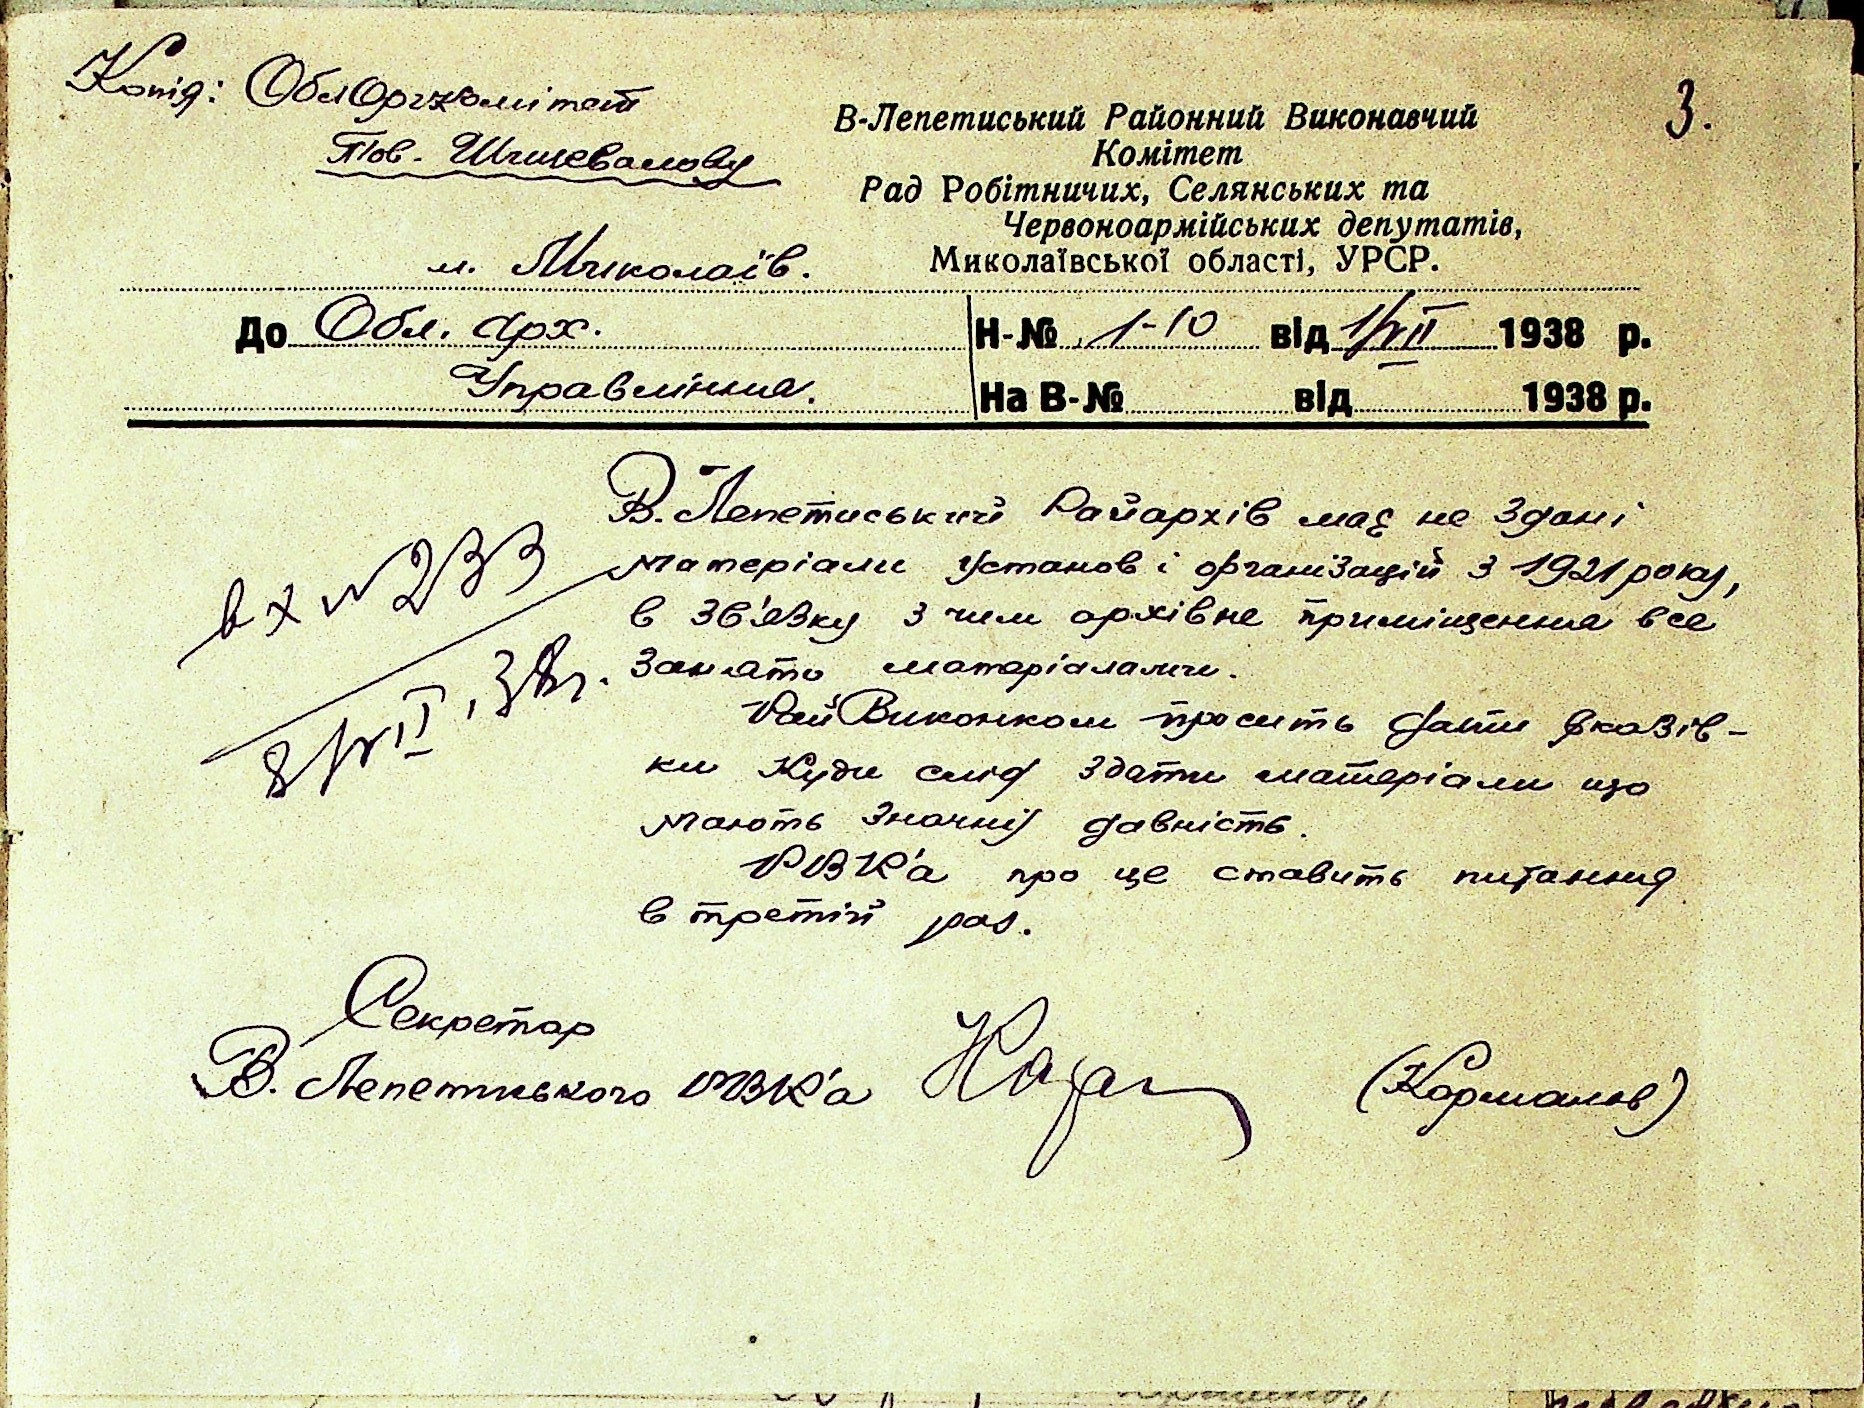 Копія: ОблОргкомітет
Тов.
м. Миколаїв.
3.
В-Лепетиський Районний Виконавчий
Комітет
Рад Робітничих, Селянських та
Червоноармійських депутатів,
Миколаївської області, УРСР.
До Обл. Арх.
Управління.
Н-№ 1-10 від 1/VII 1938 р.
На В-№ від 1938 р.
вх №233
8/VII, 38г.
В. Лепетиський Райархів має не здані
матеріали установ і організацій з 1921 року,
в зв'язку з чим архівне приміщення все
занято матеріалами.
РайВиконком просить дати вказів-
ки куди слід здати матеріали що
мають значну давність.
РВК'а про це ставить питання
в третій раз.
Секретар
В. Лепетиського РВК'а
(Корманов)